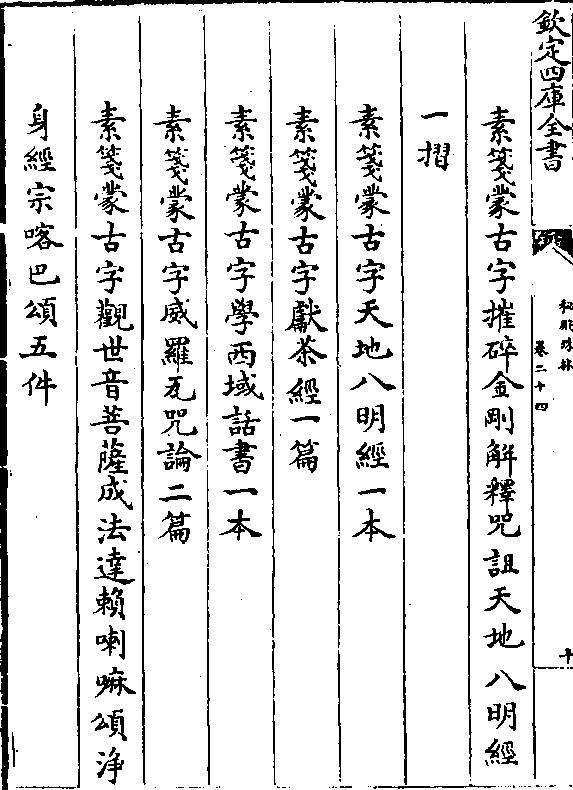 欽定四庫全書
秘殿珠林
卷二十四
十
素箋蒙古字摧碎金剛解釋咒詛天地八明經
一摺
素箋蒙古字天地八明經一本
素箋蒙古字獻茶經一篇
素箋蒙古字學西域話書一本
素箋蒙古字威羅瓦咒論二篇
素箋蒙古字觀世音菩薩成法達賴喇嘛頌淨
身經宗喀巴頌五件